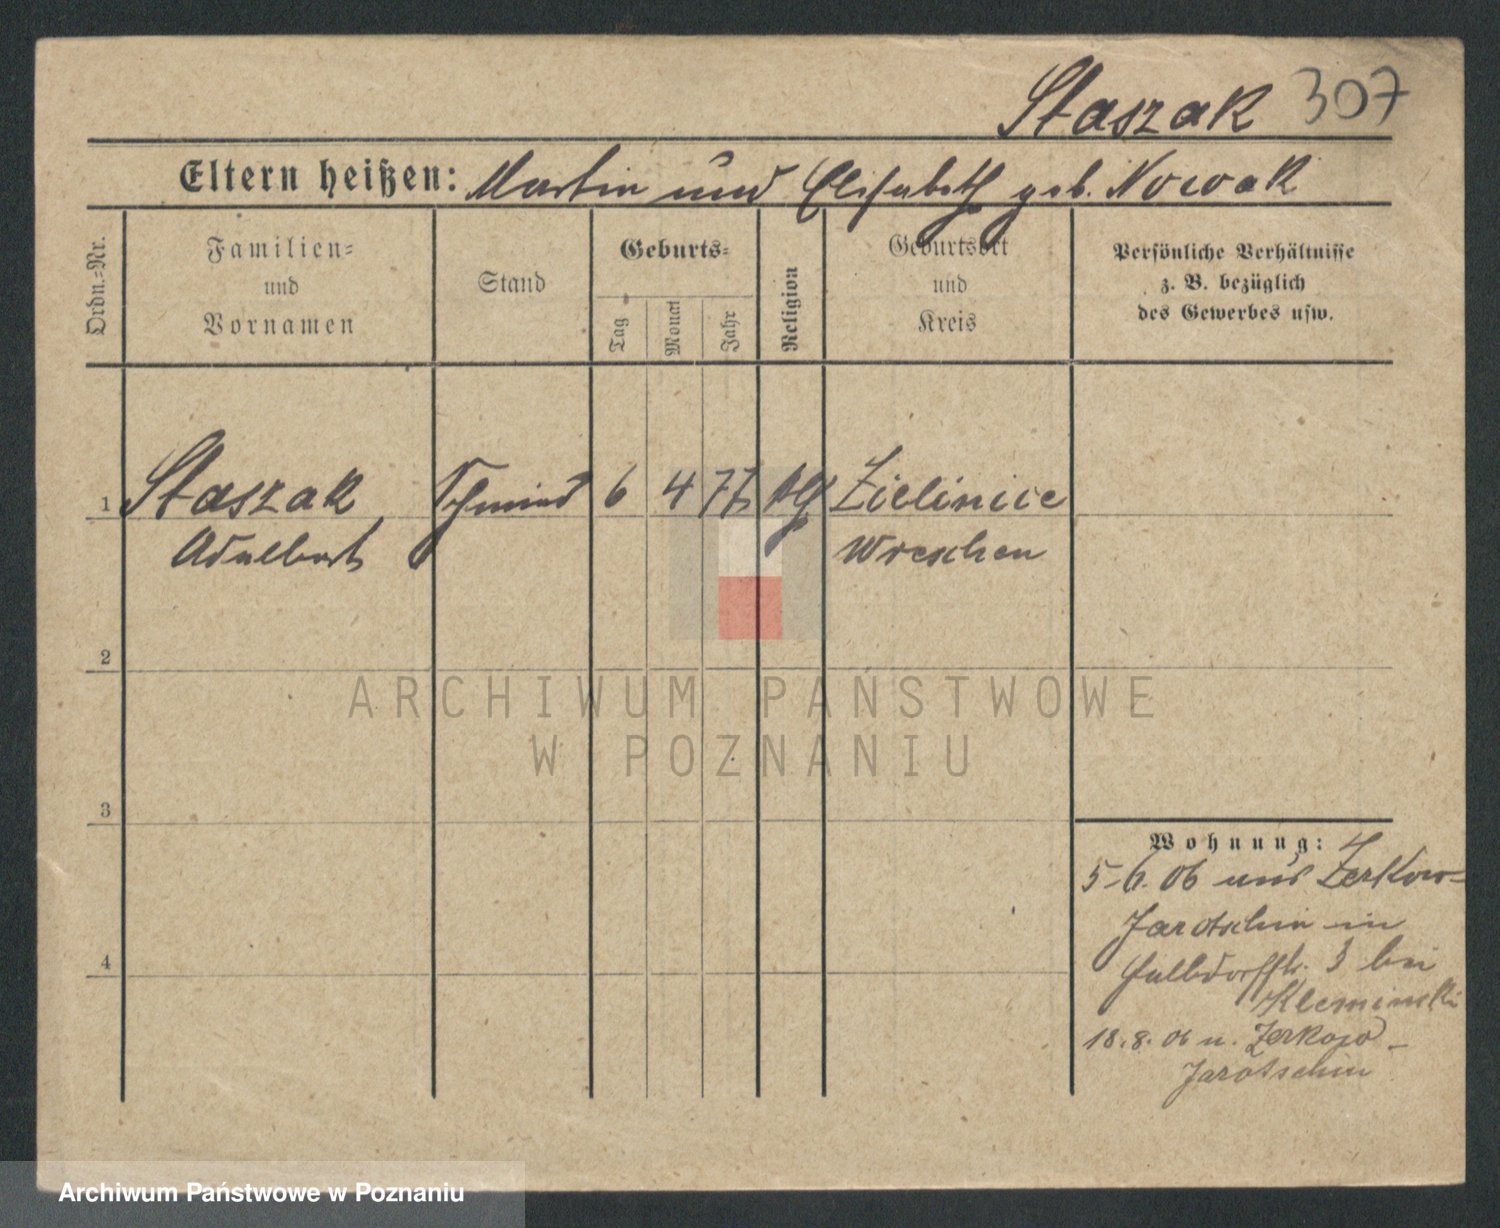 Staszak 307
Eltern heißen: Martin und Elisabeth geb. Nowak
Ordn.-Nr.
Familien-
und
Vornamen
Stand
Geburts-
Tag
Monat
Jahr
Religion
Geburtsort
und
Kreis
Persönliche Verhältnisse
z. B. bezüglich
des Gewerbes usw.
1 Staszak Schmied 6 4 77 Zielinice
Adalbert Wreschen
2
3
4
Wohnung:
5.6.06 aus Zerkow-
Jarotschin in
3 bei
Kleminski
18.8.06 n. Zerkow-
Jarotschin
ARCHIWUM PAŃSTWOWE
W POZNANIU
Archiwum Państwowe w Poznaniu